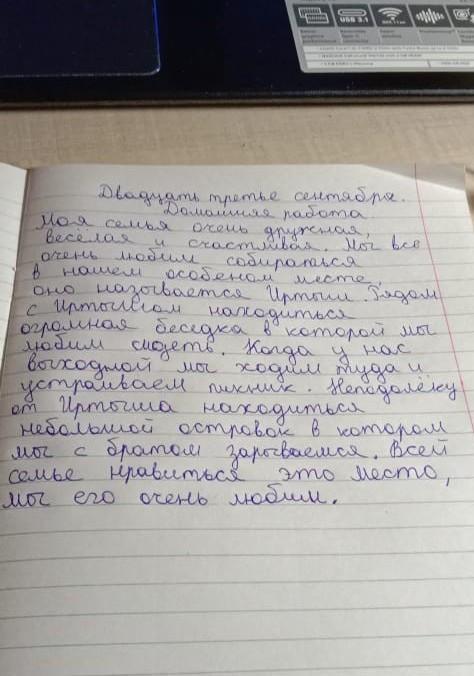 USB 3.1
Двадцать третье сентября.
Домашняя работа
Моя семья очень дружная,
весёлая и счастливая. Мы все
очень любим собираться
в нашем особеном месте,
оно называется Иртыш. Рядом
с Иртышом находиться
огромная беседка в которой мы
любим сидеть. Когда у нас
выходной мы ходим туда и
устраиваем пикник. Неподолёку
от Иртыша находиться
небольшой островок в котором
мы с братом зарываемся. Всей
семье нравиться это место,
мы его очень любим.